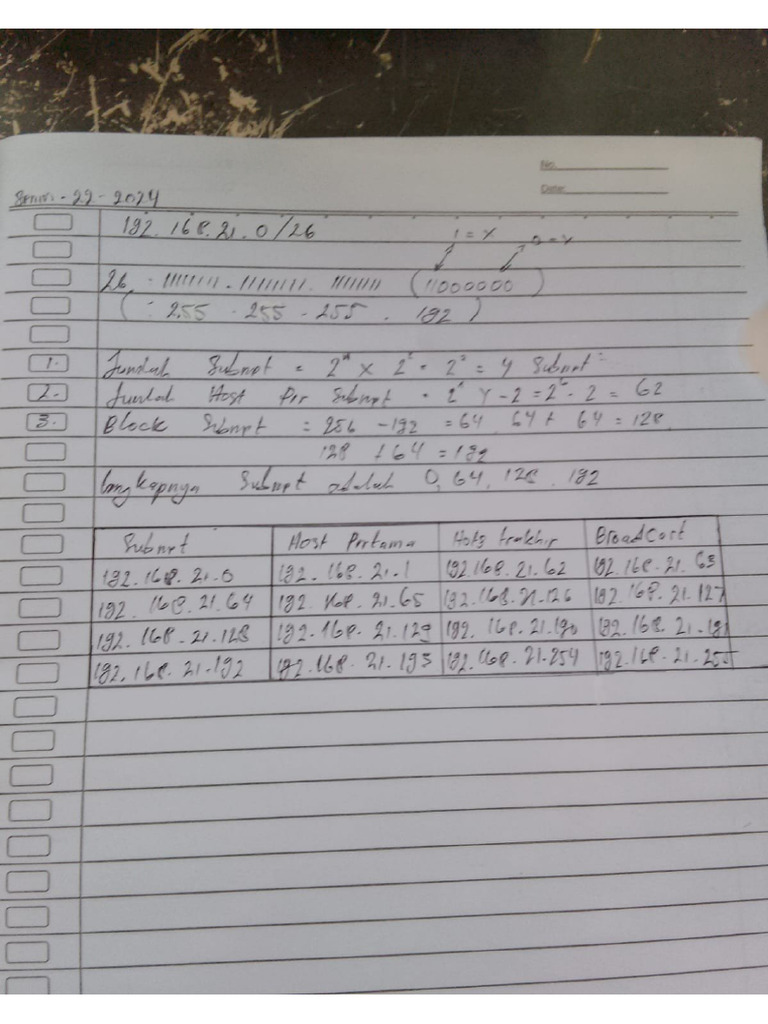 No.
Date:
Senin - 22 - 2024
192. 168. 21. 0 / 26
1 = X 0 = Y
26 = 11111111 . 11111111 . 11111111 (11000000)
( : 255 . 255 . 255 . 192 )
1. Jumlah Subnet = 2ˣ X 2² = 2² = 4 Subnet
2. Jumlah Host Per Subnet = 2^ Y - 2 = 2⁶ - 2 = 62
3. Block Subnet = 256 - 192 = 64 64 + 64 = 128
128 + 64 = 192
lengkapnya Subnet adalah 0, 64, 128, 192
Subnet Host Pertama Hots terakhir BroadCast
192.168.21.0 192.168.21.1 192.168.21.62 192.168.21.63
192.168.21.64 192.168.21.65 192.168.21.126 192.168.21.127
192.168.21.128 192.168.21.129 192.168.21.190 192.168.21.191
192.168.21.192 192.168.21.193 192.168.21.254 192.168.21.255